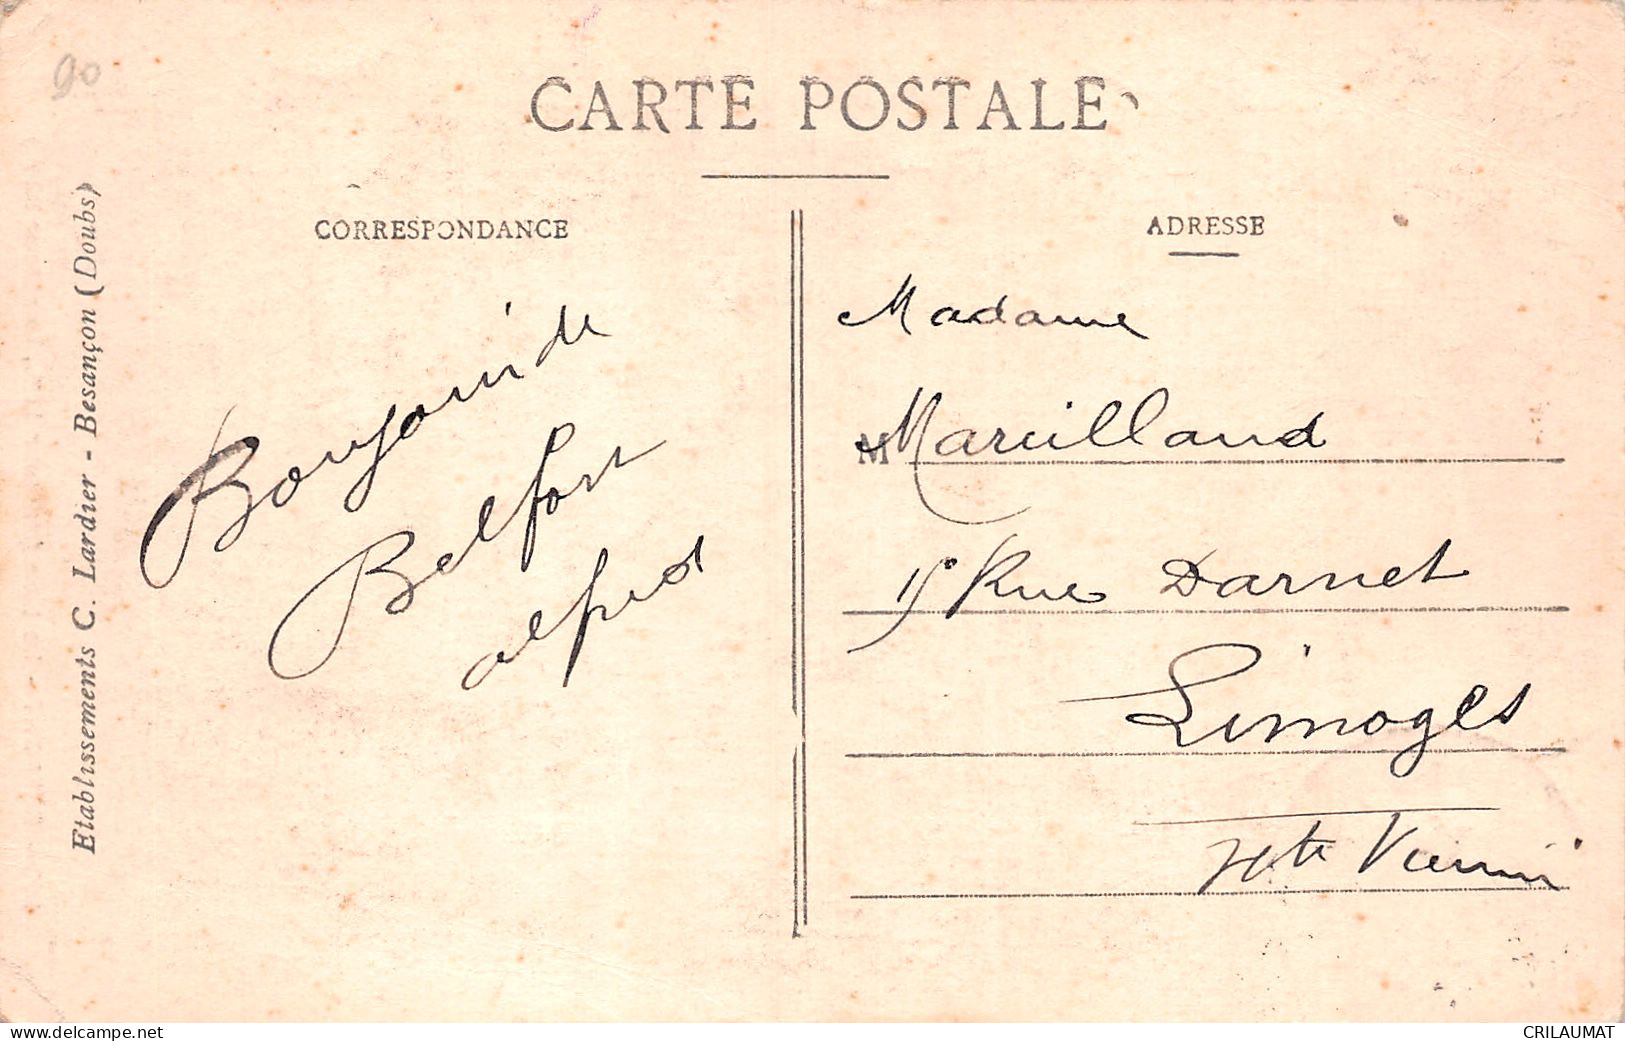 90
CARTE POSTALE
CORRESPONDANCE
ADRESSE
Etablissements C. Lardier - Besançon (Doubs)
Bonjour de
Belfort
alfred
Madame
M Mareilland
15 Rue Darnet
Limoges
Hte Vienne
www.delcampe.net
CRILAUMAT